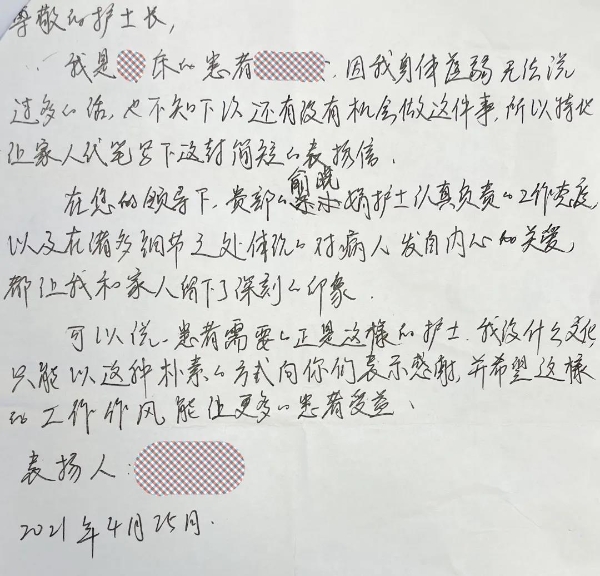 尊敬的护士长，
我是 床的患者 ，因我身体虚弱无法说
过多的话，也不知下次还有没有机会做这件事，所以特地
让家人代笔写下这封简短的表扬信。
俞晓
在您的领导下，贵部的 娟护士认真负责的工作态度，
以及在诸多细节之处体现的对病人发自内心的关爱，
都让我和家人留下了深刻的印象。
可以说，患者需要的正是这样的护士，我没什么文化，
只能以这种朴素的方式向你们表示感谢，并希望这样
的工作作风能让更多的患者受益。
表扬人：
2021年4月25日.